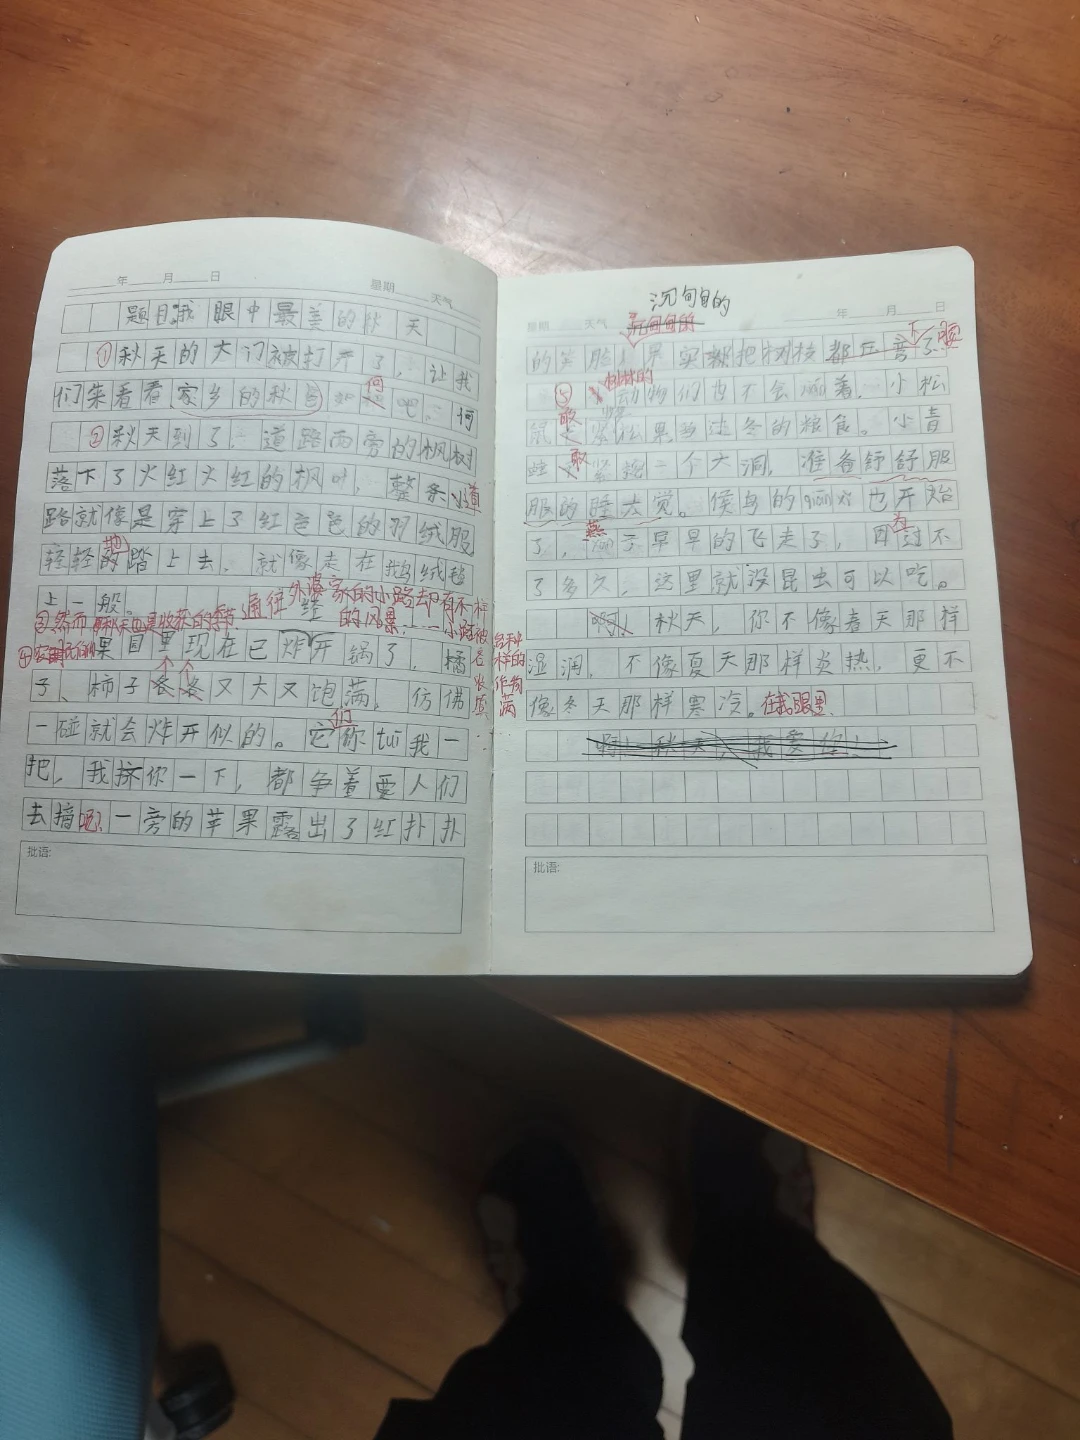 年 月 日 星期 天气
题目:我眼中最美的秋天
①秋天的大门被打开了,让我
们来看看家乡的秋色如何吧。
②秋天到了,道路两旁的枫树
落下了火红火红的枫叶,整条小道
路就像是穿上了红色的羽绒服
轻轻地踏上去,就像走在鹅绒毯
上一般。
③然而秋天也是收获的季节,通往外婆家的小路却有不一样的风景
小路被各
④果园里现在已炸开锅了,橘
子、柿子又大又饱满,仿佛
一碰就会炸开似的。它们你tuī我一
把,我挤你一下,都争着要人们
去摘呢?一旁的苹果露出了红扑扑
批语:
沉甸甸的
星期 天气 年 月 日
的笑脸,果实都把树枝都压弯了腰
⑤树林的动物们也不会闲着,小松
鼠松果当过冬的粮食。小青
蛙挖一个大洞,准备舒舒服
服的睡大觉。候鸟的qiān xǐ也开始
了,燕子早早的飞走了,因为过不
了多久,这里就没昆虫可以吃。
啊!秋天,你不像春天那样
湿润,不像夏天那样炎热,更不
像冬天那样寒冷。在我眼里
啊!秋天,我爱你!
批语: